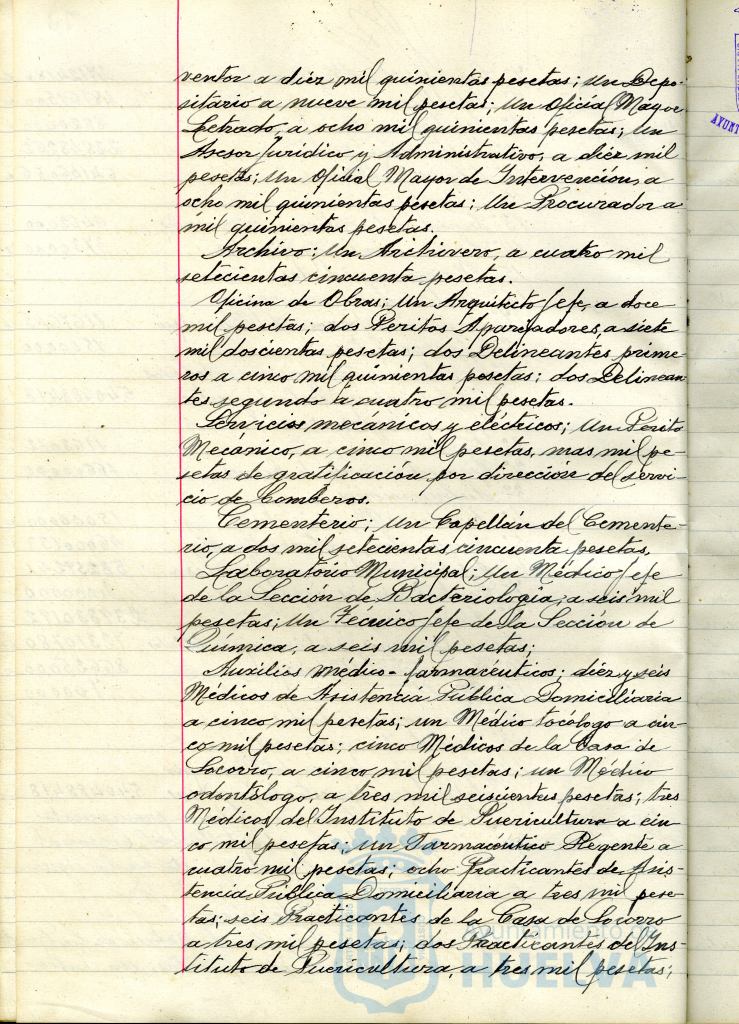 ventor a diéz mil quinientas pesetas; un Depo-
sitario a nueve mil pesetas; un Oficial Mayor
Letrado, a ocho mil quinientas pesetas; un
Asesor Jurídico y Administrativo, a diéz mil
pesetas; un Oficial Mayor de Intervención, a
ocho mil quinientas pesetas; un Procurador a
mil quinientas pesetas.
Archivo; un Archivero, a cuatro mil
setecientas cincuenta pesetas.
Oficina de Obras; un Arquitecto Jefe, a doce
mil pesetas; dos Peritos Aparejadores, a siete
mil doscientas pesetas; dos Delineantes prime-
ros a cinco mil quinientas pesetas; dos Delinean-
tes segundo a cuatro mil pesetas.
Servicios mecánicos y eléctricos; un Perito
Mecánico, a cinco mil pesetas, mas mil pe-
setas de gratificación por dirección del servi-
cio de Bomberos.
Cementerio; un Capellán del Cemente-
rio, a dos mil setecientas cincuenta pesetas.
Laboratorio Municipal; Un Médico Jefe
de la Sección de Bacteriologia, a seis mil
pesetas; un Técnico Jefe de la Sección de
Química, a seis mil pesetas;
Auxilios médico-farmacéuticos; diéz y seis
Médicos de Asistencia Pública Domiciliaria
a cinco mil pesetas; un Médico tocólogo a cin-
co mil pesetas; cinco Médicos de la Casa de
Socorro, a cinco mil pesetas; un Médico
odontólogo, a tres mil seiscientas pesetas; tres
Médicos del Instituto de Puericultura a cin-
co mil pesetas; un Farmacéutico Regente a
cuatro mil pesetas; ocho Practicantes de Asis-
tencia Pública Domiciliaria a tres mil pese-
tas; seis Practicantes de la Casa de Socorro
a tres mil pesetas; dos Practicantes del Ins-
tituto de Puericultura, a tres mil pesetas;
Ayuntamiento de
HUELVA